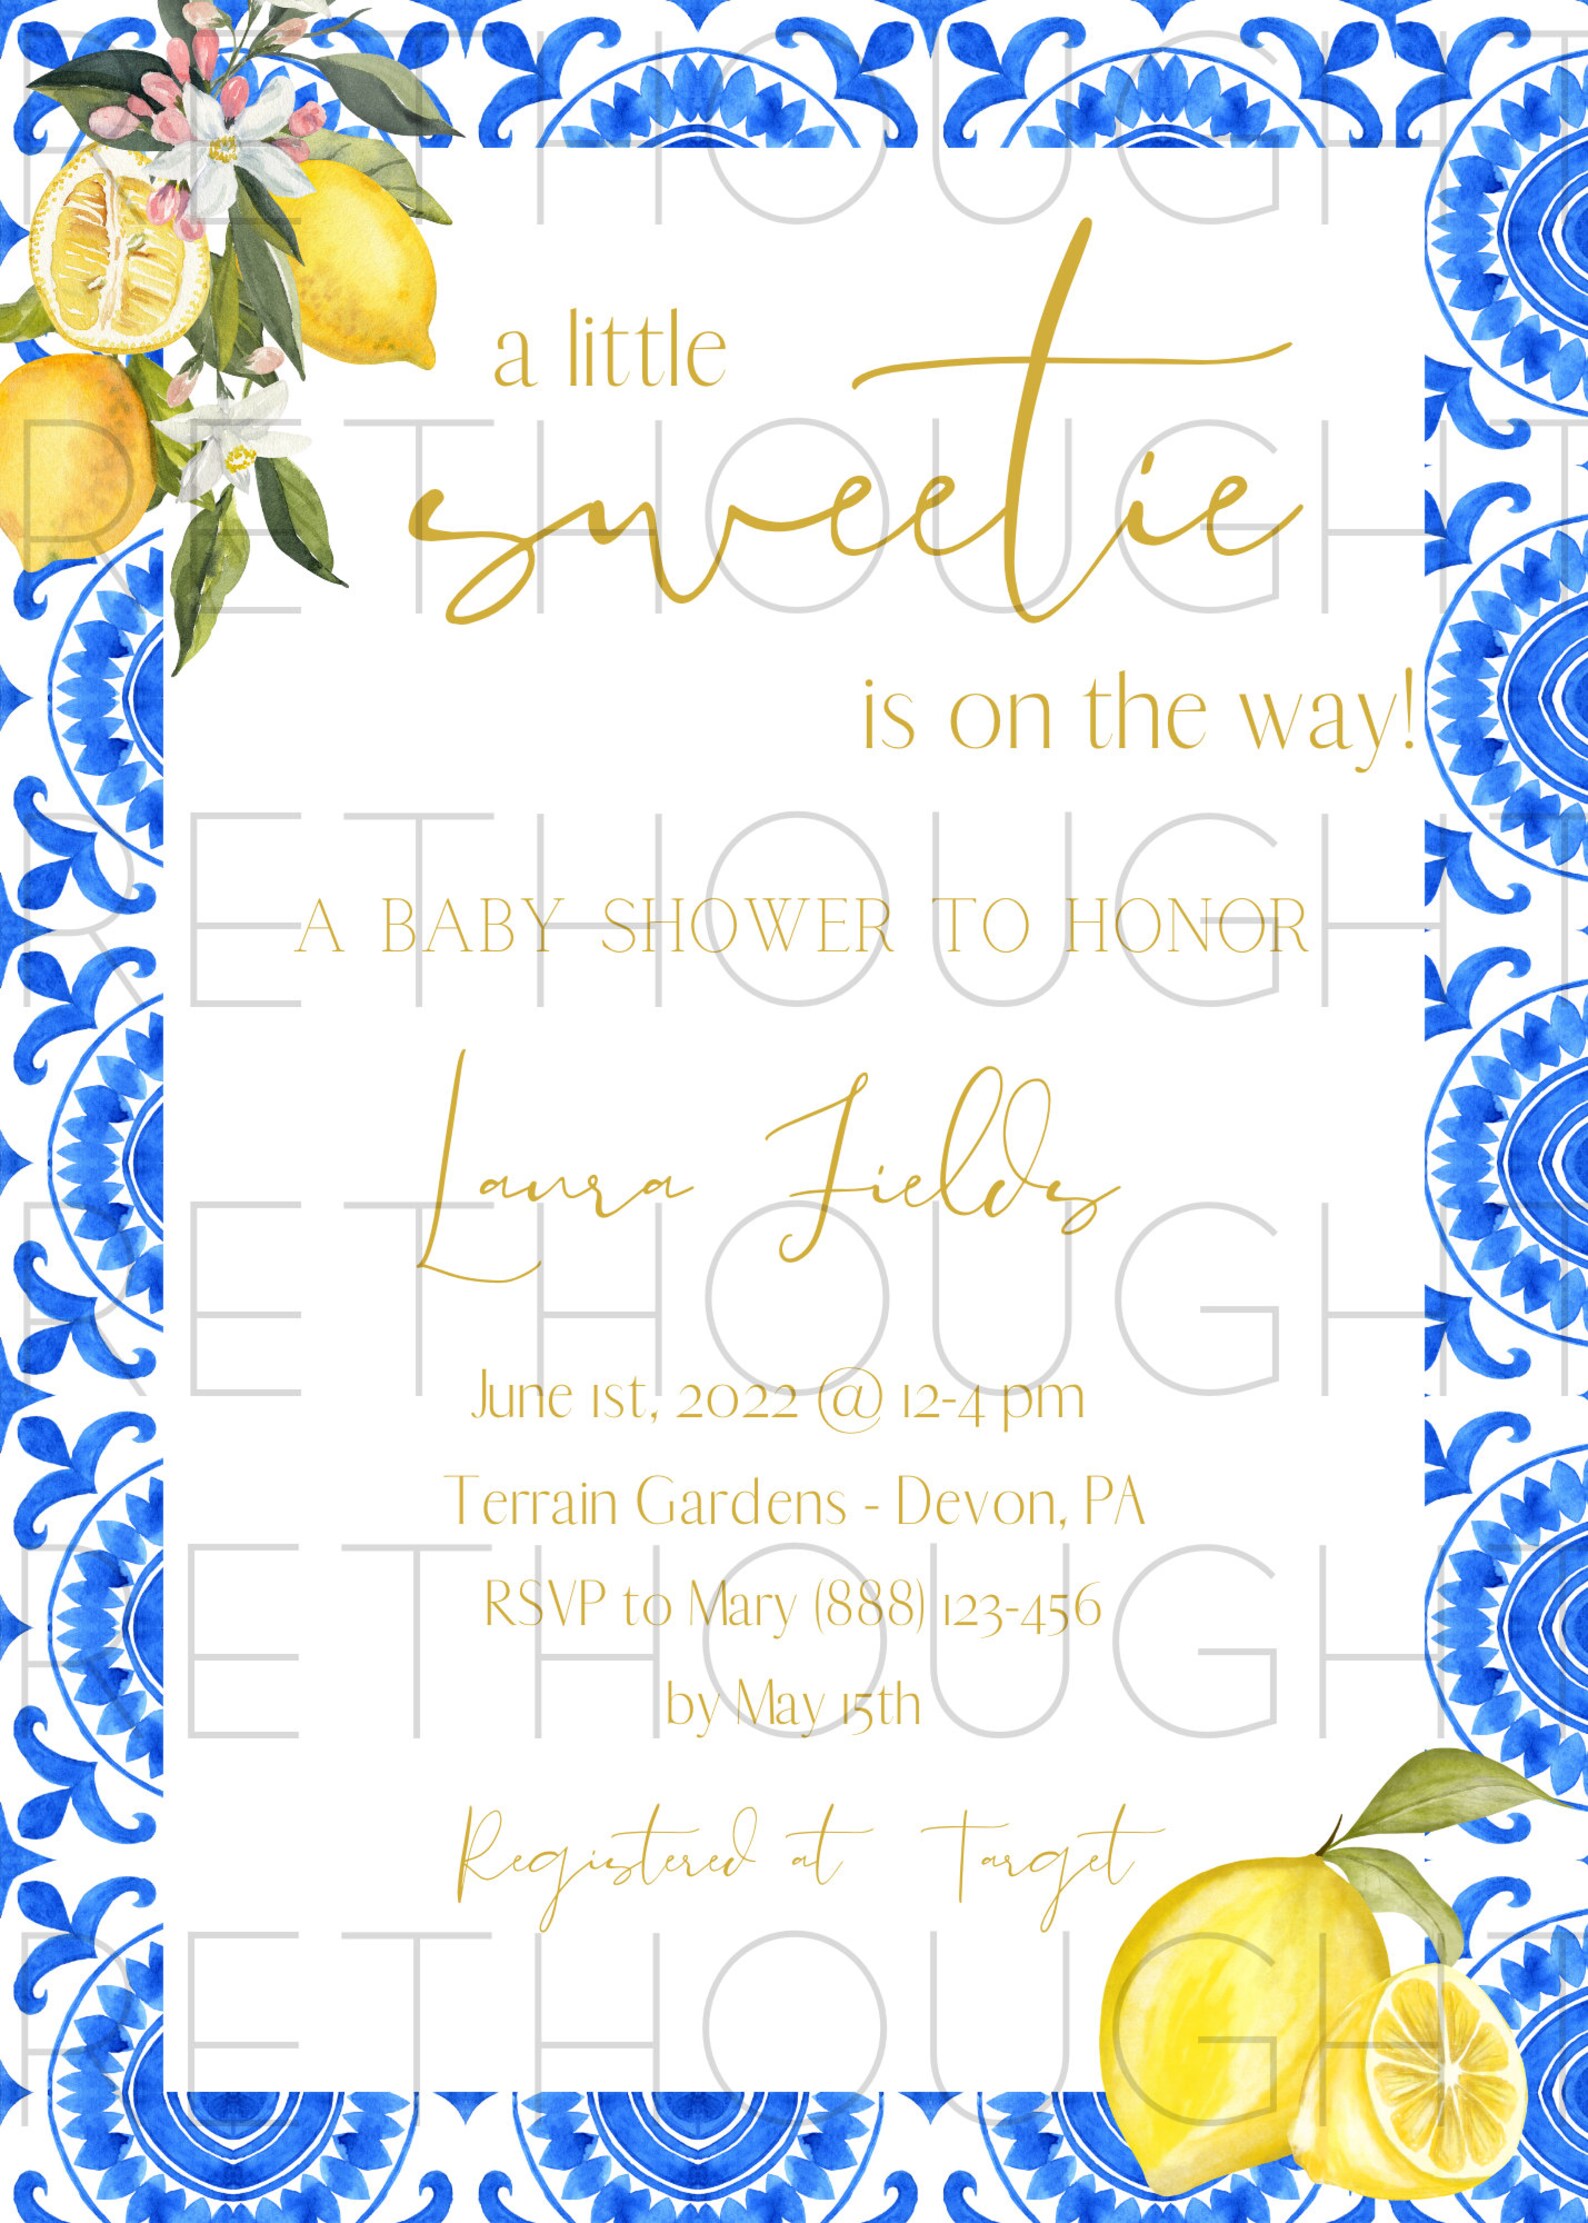 a little
sweetie
is on the way!
A BABY SHOWER TO HONOR
Laura Fields
June 1st, 2022 @ 12-4 pm
Terrain Gardens - Devon, PA
RSVP to Mary (888) 123-456
by May 15th
Registered at Target
RETHOUGHT
RETHOUGHT
RETHOUGHT
RETHOUGHT
RETHOUGHT
RETHOUGHT